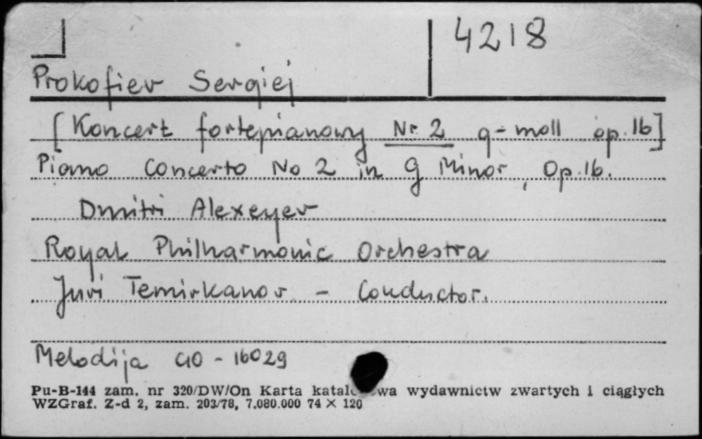 4218
Prokofiev Sergiej
[Koncert fortepianowy Nr 2 g-moll op. 16]
Piano Concerto No 2 in G Minor, Op. 16.
Dmitri Alexeyev
Royal Philharmonic Orchestra
Juri Temirkanov - Conductor.
Melodija C10-16029
Pu-B-144 zam. nr 320/DW/On Karta katalo wa wydawnictw zwartych i ciągłych
WZGraf. Z-d 2, zam. 203/78, 7.080.000 74 × 120